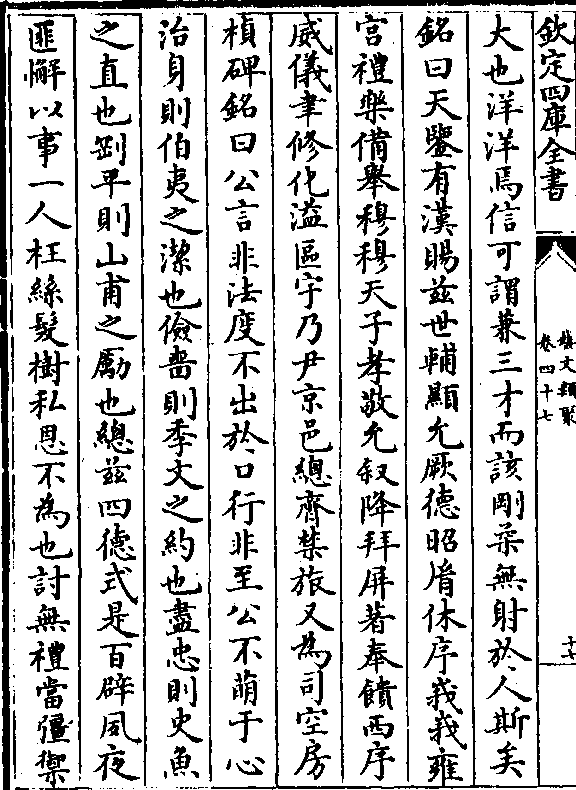 欽定四庫全書
藝文類聚
卷四十七
十七
大也洋洋焉信可謂兼三才而該剛柔無射於人斯矣
銘曰天鑒有漢賜兹世輔顯允厥德昭脩休序峩峩雍
宫禮樂備舉穆穆天子孝敬允叙降拜屏著奉饋西序
威儀聿修化溢區宇乃尹京邑總齊禁旅又為司空房
楨碑銘曰公言非法度不出於口行非至公不萌于心
治身則伯夷之潔也儉嗇則季文之約也盡忠則史魚
之直也剛平則山甫之勵也總兹四徳式是百辟夙夜
匪懈以事一人枉絲髮樹私恩不為也討無禮當彊禦